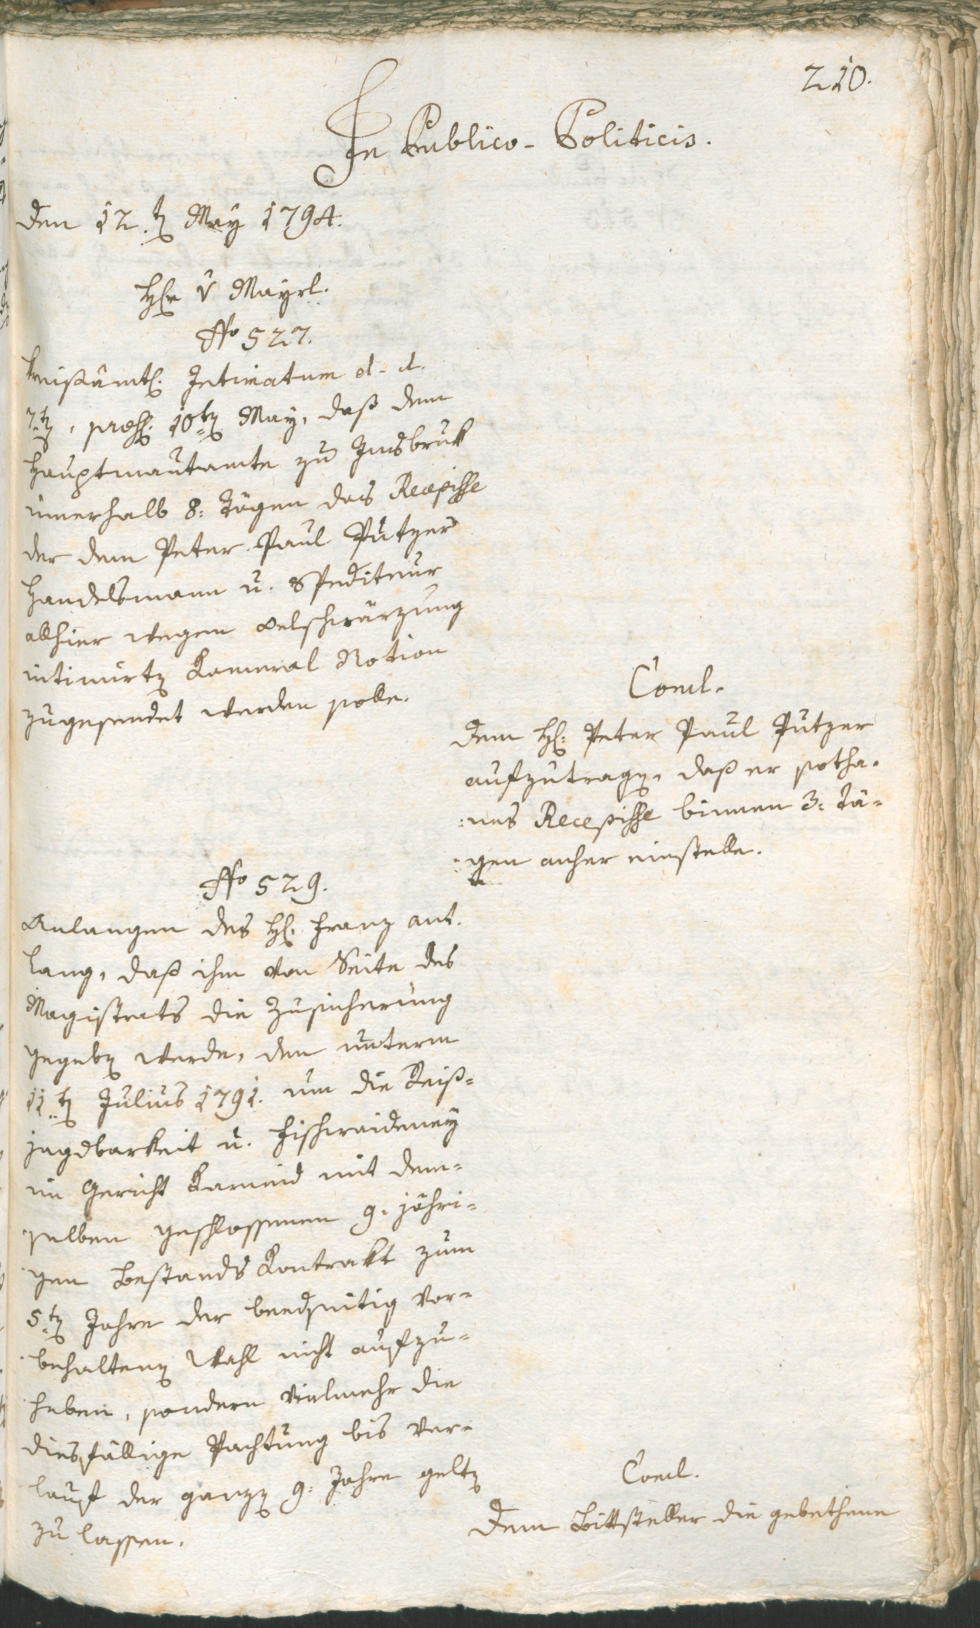 210.
In Publico-Politicis.
Den 12.t̃ May 1794.
Hr v Mayrl.
No 527.
Kreißämtl. Intimatum d. d.
7.t̃, præs. 10t̃ May, daß dem
Hauptmautamte zu Insbruk
innerhalb 8: Tägen das Recepisse
der dem Peter Paul Putzer
Handelsmann u. Spediteur
allhier wegen Oelschwärzung
intimirt̃ Kameral Notion
zugesendet werden solle.
Concl.
Dem H: Peter Paul Putzer
aufzutrag̃, daß er sotha-
:nes Recepisse binnen 3: Tä-
:gen anher einstelle.
No 529.
Anlangen des H: Franz Ant.
Lang, daß ihm von Seite des
Magistrats die Zusicherung
gegeb̃ werde, den unterm
11.t̃ Julius 1791. um die Reiß-
jagdbarkeit u. Fischwaideney
im Gericht Karneid mit dem-
selben geschlossenen 9. jähri-
gen Bestands Kontrakt zum
5t̃ Jahre der beedseitig vor-
behalten̄ Wahl nicht aufzu-
heben, sondern vielmehr die
diesfällige Pachtung bis Ver-
lauf der ganz̃ 9: Jahre gelt̃
zu lassen.
Concl.
Dem Bittsteller die gebethene